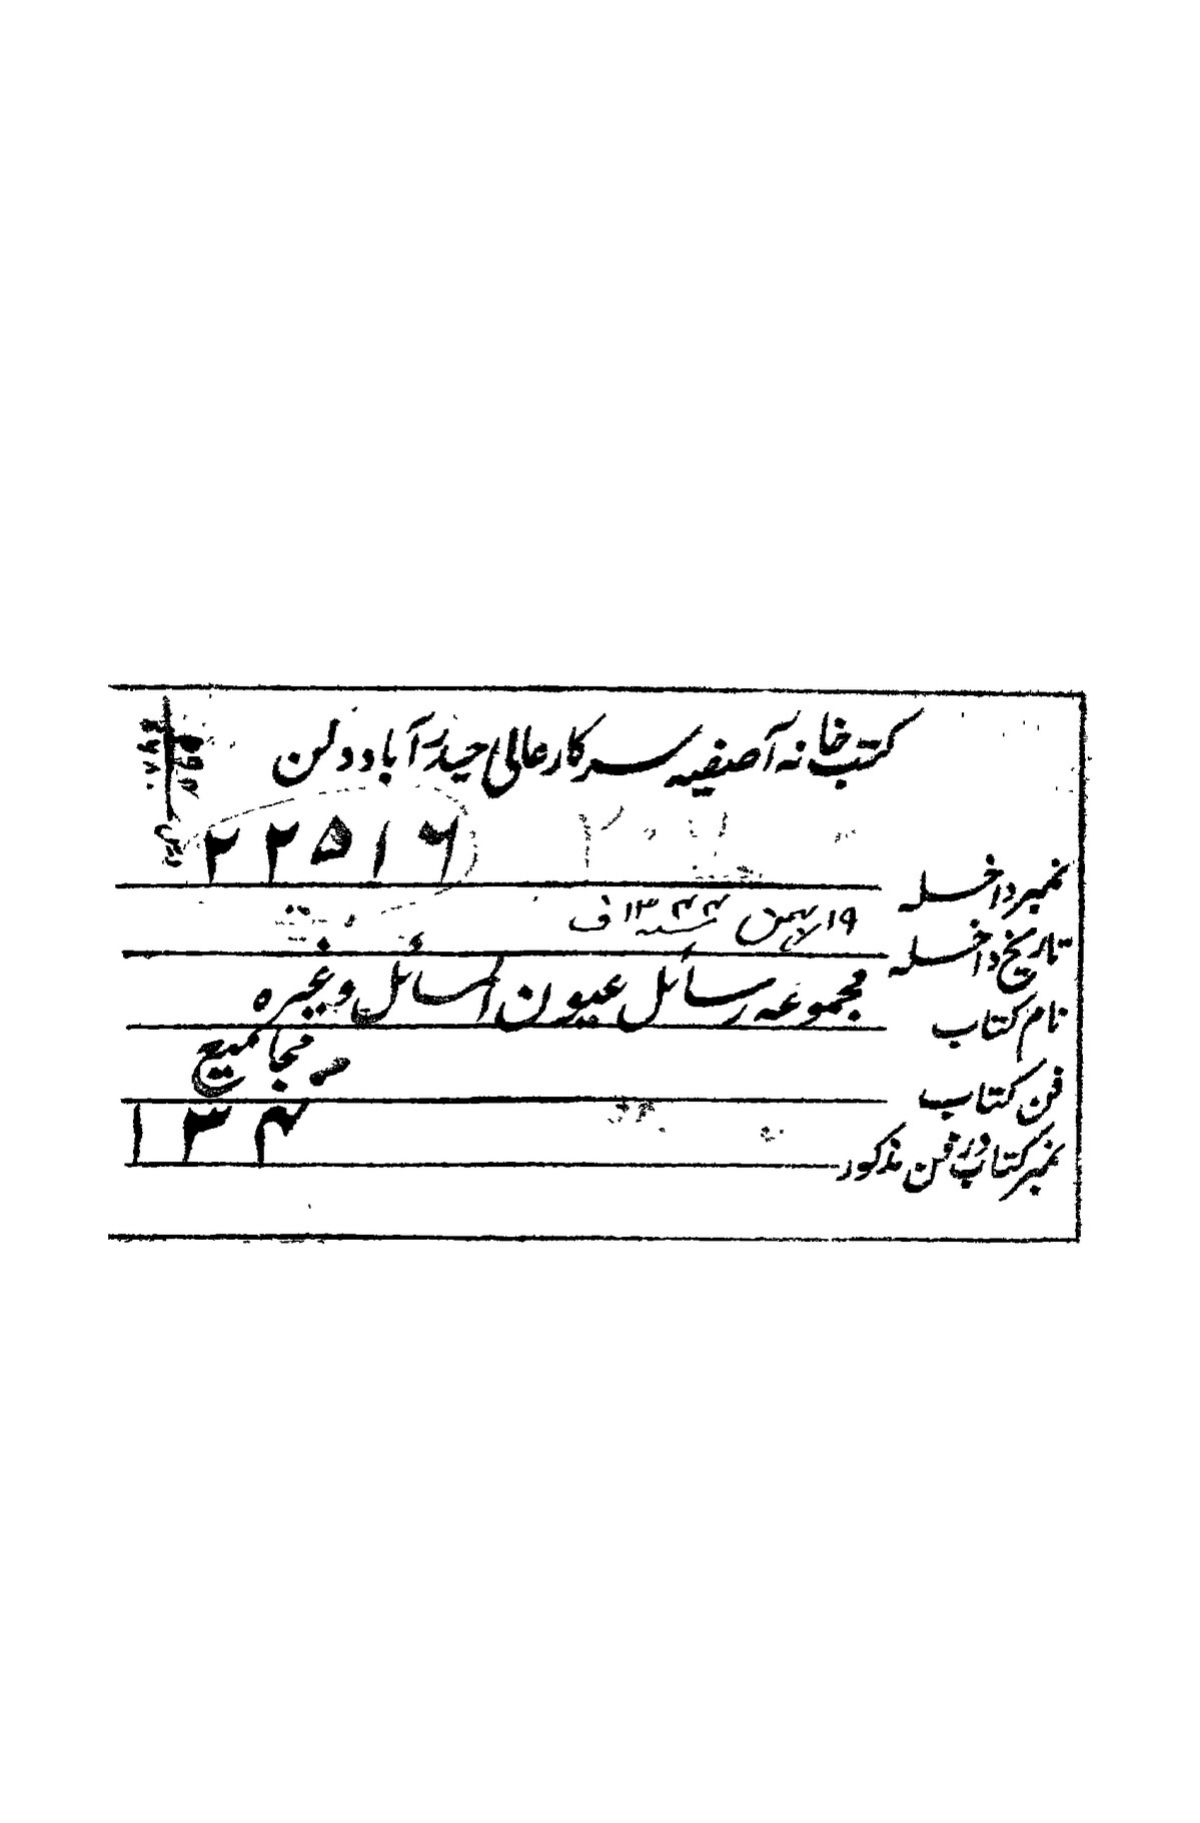 کتب خانہ آصفیہ سرکار عالی حیدرآباد دکن
نمبر داخلہ ۲۲۵۱۶
تاریخ داخلہ ۱۹ بہمن سنہ ۱۳۴۴ ف
نام کتاب مجموعہ رسائل عیون المسائل وغیرہ
فن کتاب مجامیع
نمبر کتاب در فن مذکور ۱۳۴